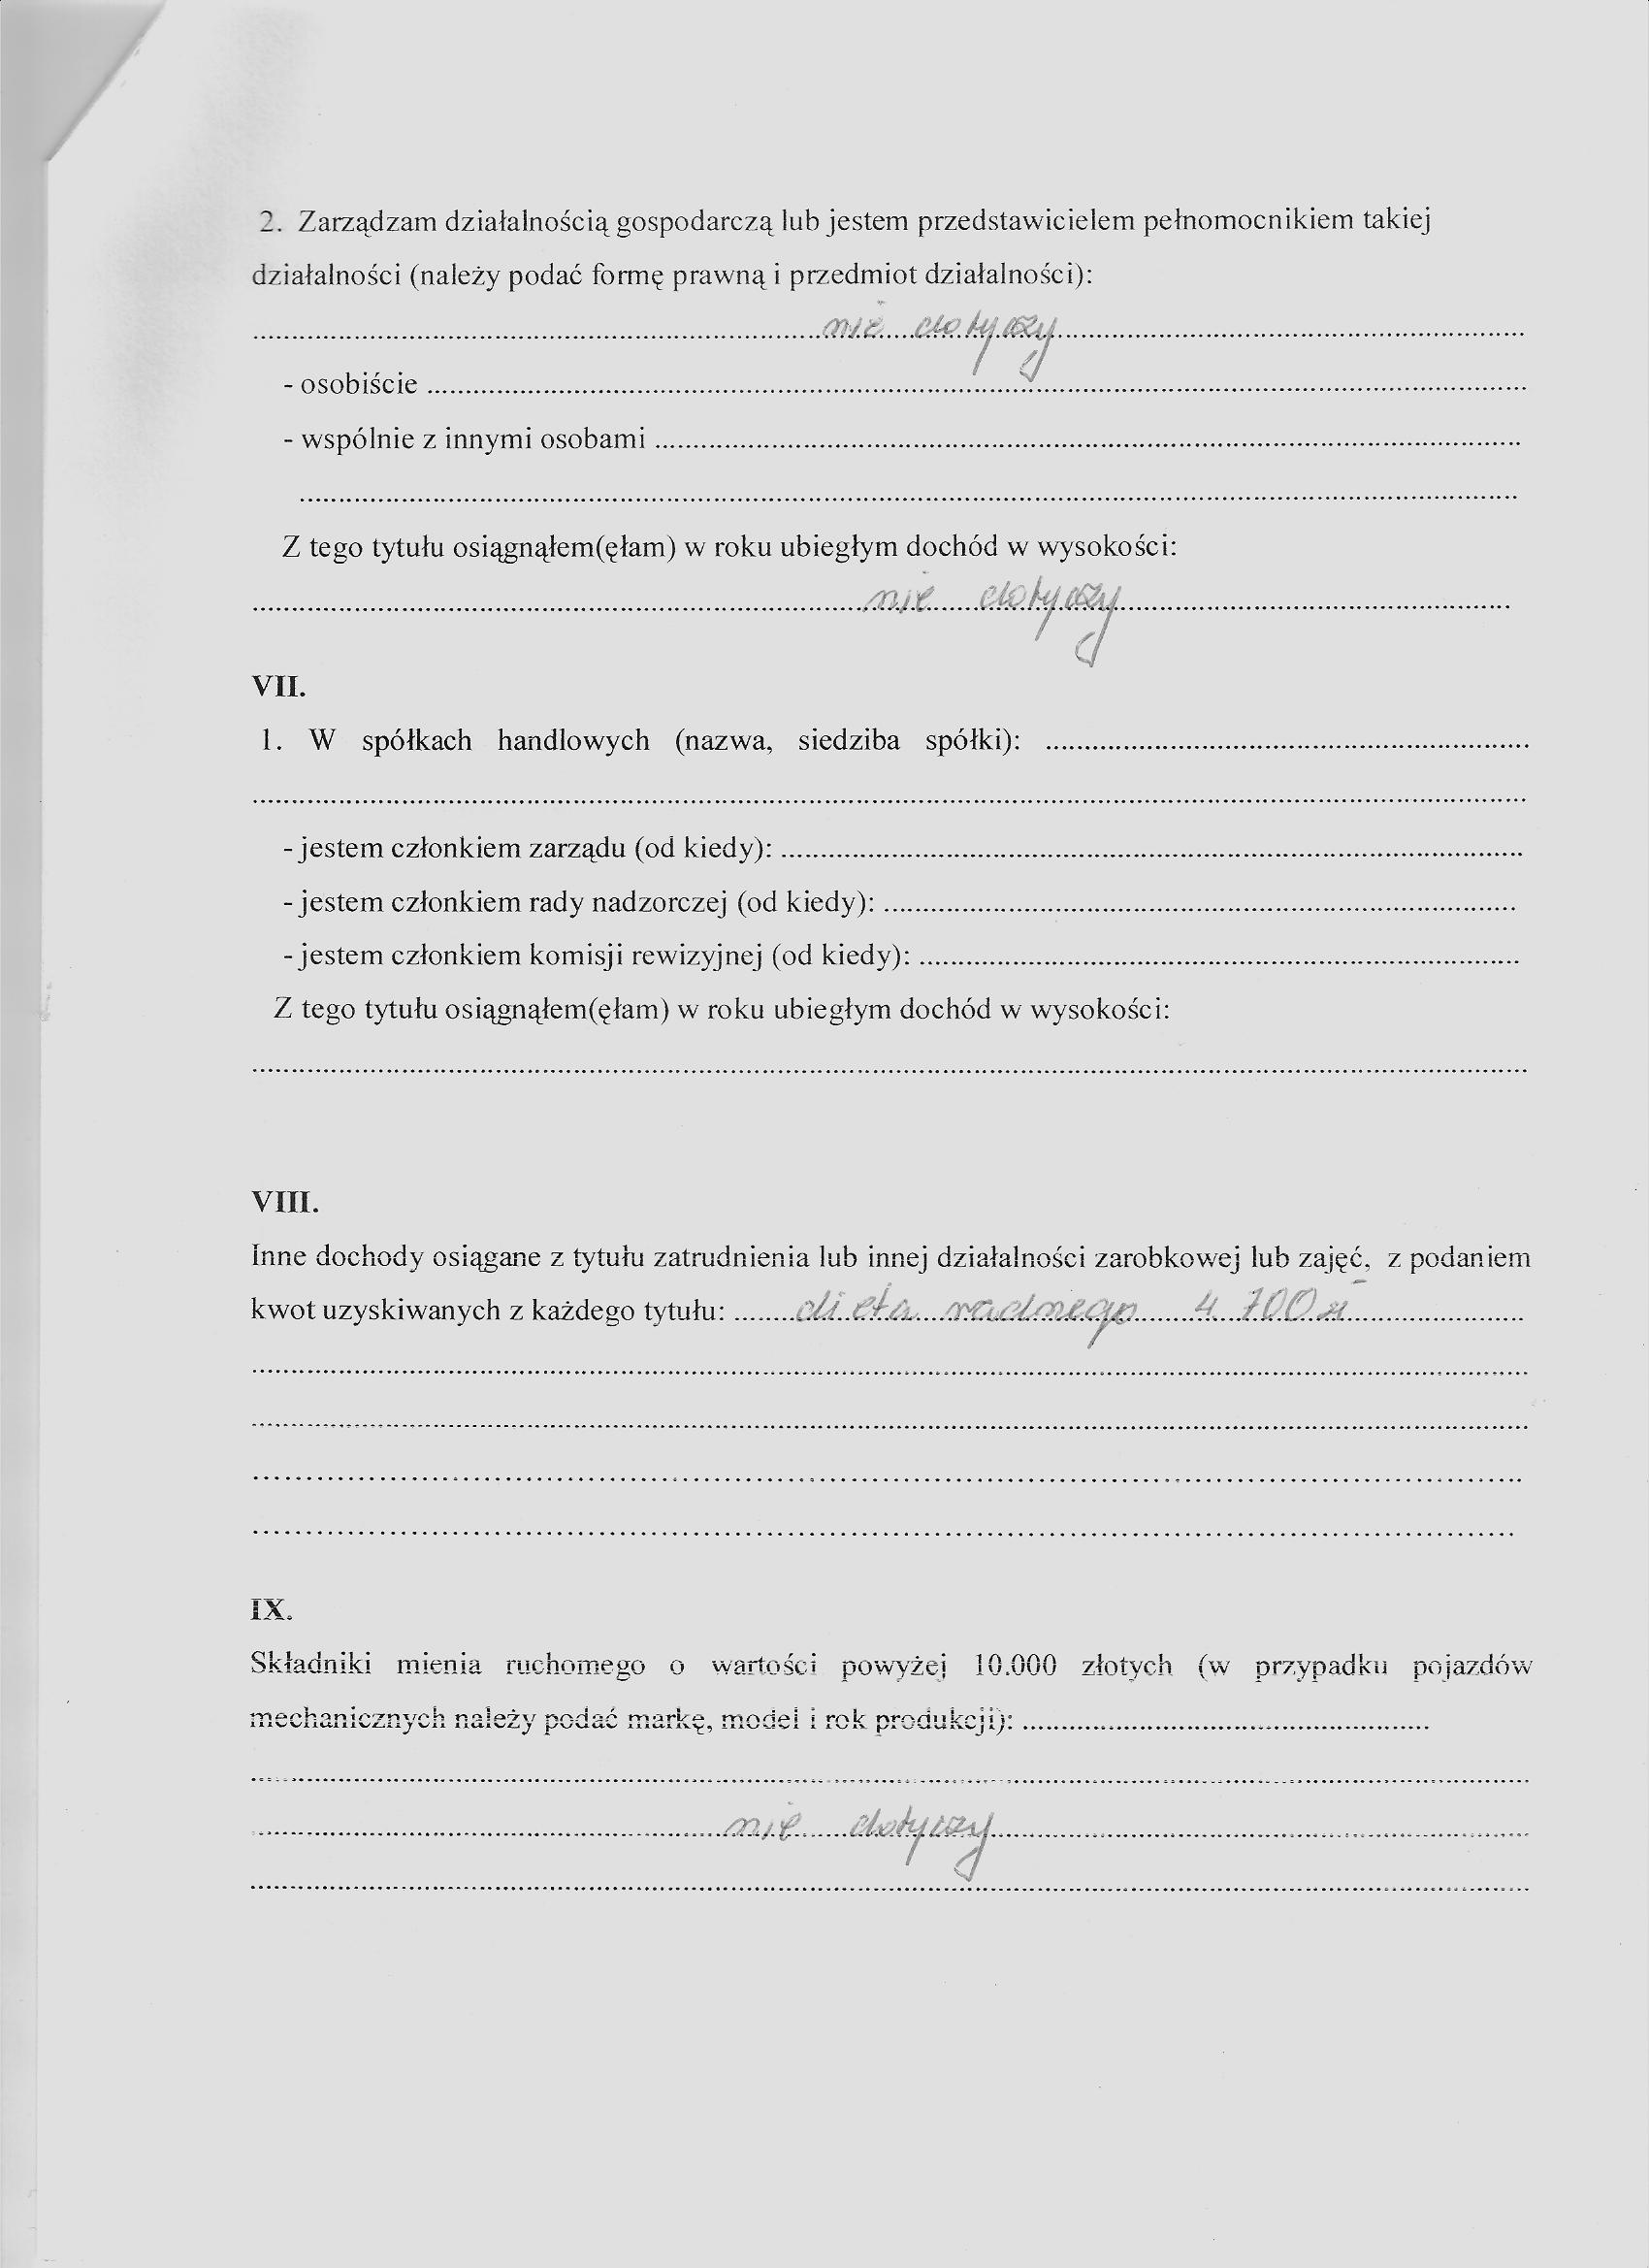 2. Zarządzam działalnością gospodarczą lub jestem przedstawicielem pełnomocnikiem takiej
działalności (należy podać formę prawną i przedmiot działalności):
nie dotyczy
- osobiście
- wspólnie z innymi osobami
Z tego tytułu osiągnąłem(ęłam) w roku ubiegłym dochód w wysokości:
nie dotyczy
VII.
1. W spółkach handlowych (nazwa, siedziba spółki):
- jestem członkiem zarządu (od kiedy):
- jestem członkiem rady nadzorczej (od kiedy):
- jestem członkiem komisji rewizyjnej (od kiedy):
Z tego tytułu osiągnąłem(ęłam) w roku ubiegłym dochód w wysokości:
VIII.
Inne dochody osiągane z tytułu zatrudnienia lub innej działalności zarobkowej lub zajęć, z podaniem
kwot uzyskiwanych z każdego tytułu: dieta radnego 4.700 zł
IX.
Składniki mienia ruchomego o wartości powyżej 10.000 złotych (w przypadku pojazdów
mechanicznych należy podać markę, model i rok produkcji):
nie dotyczy